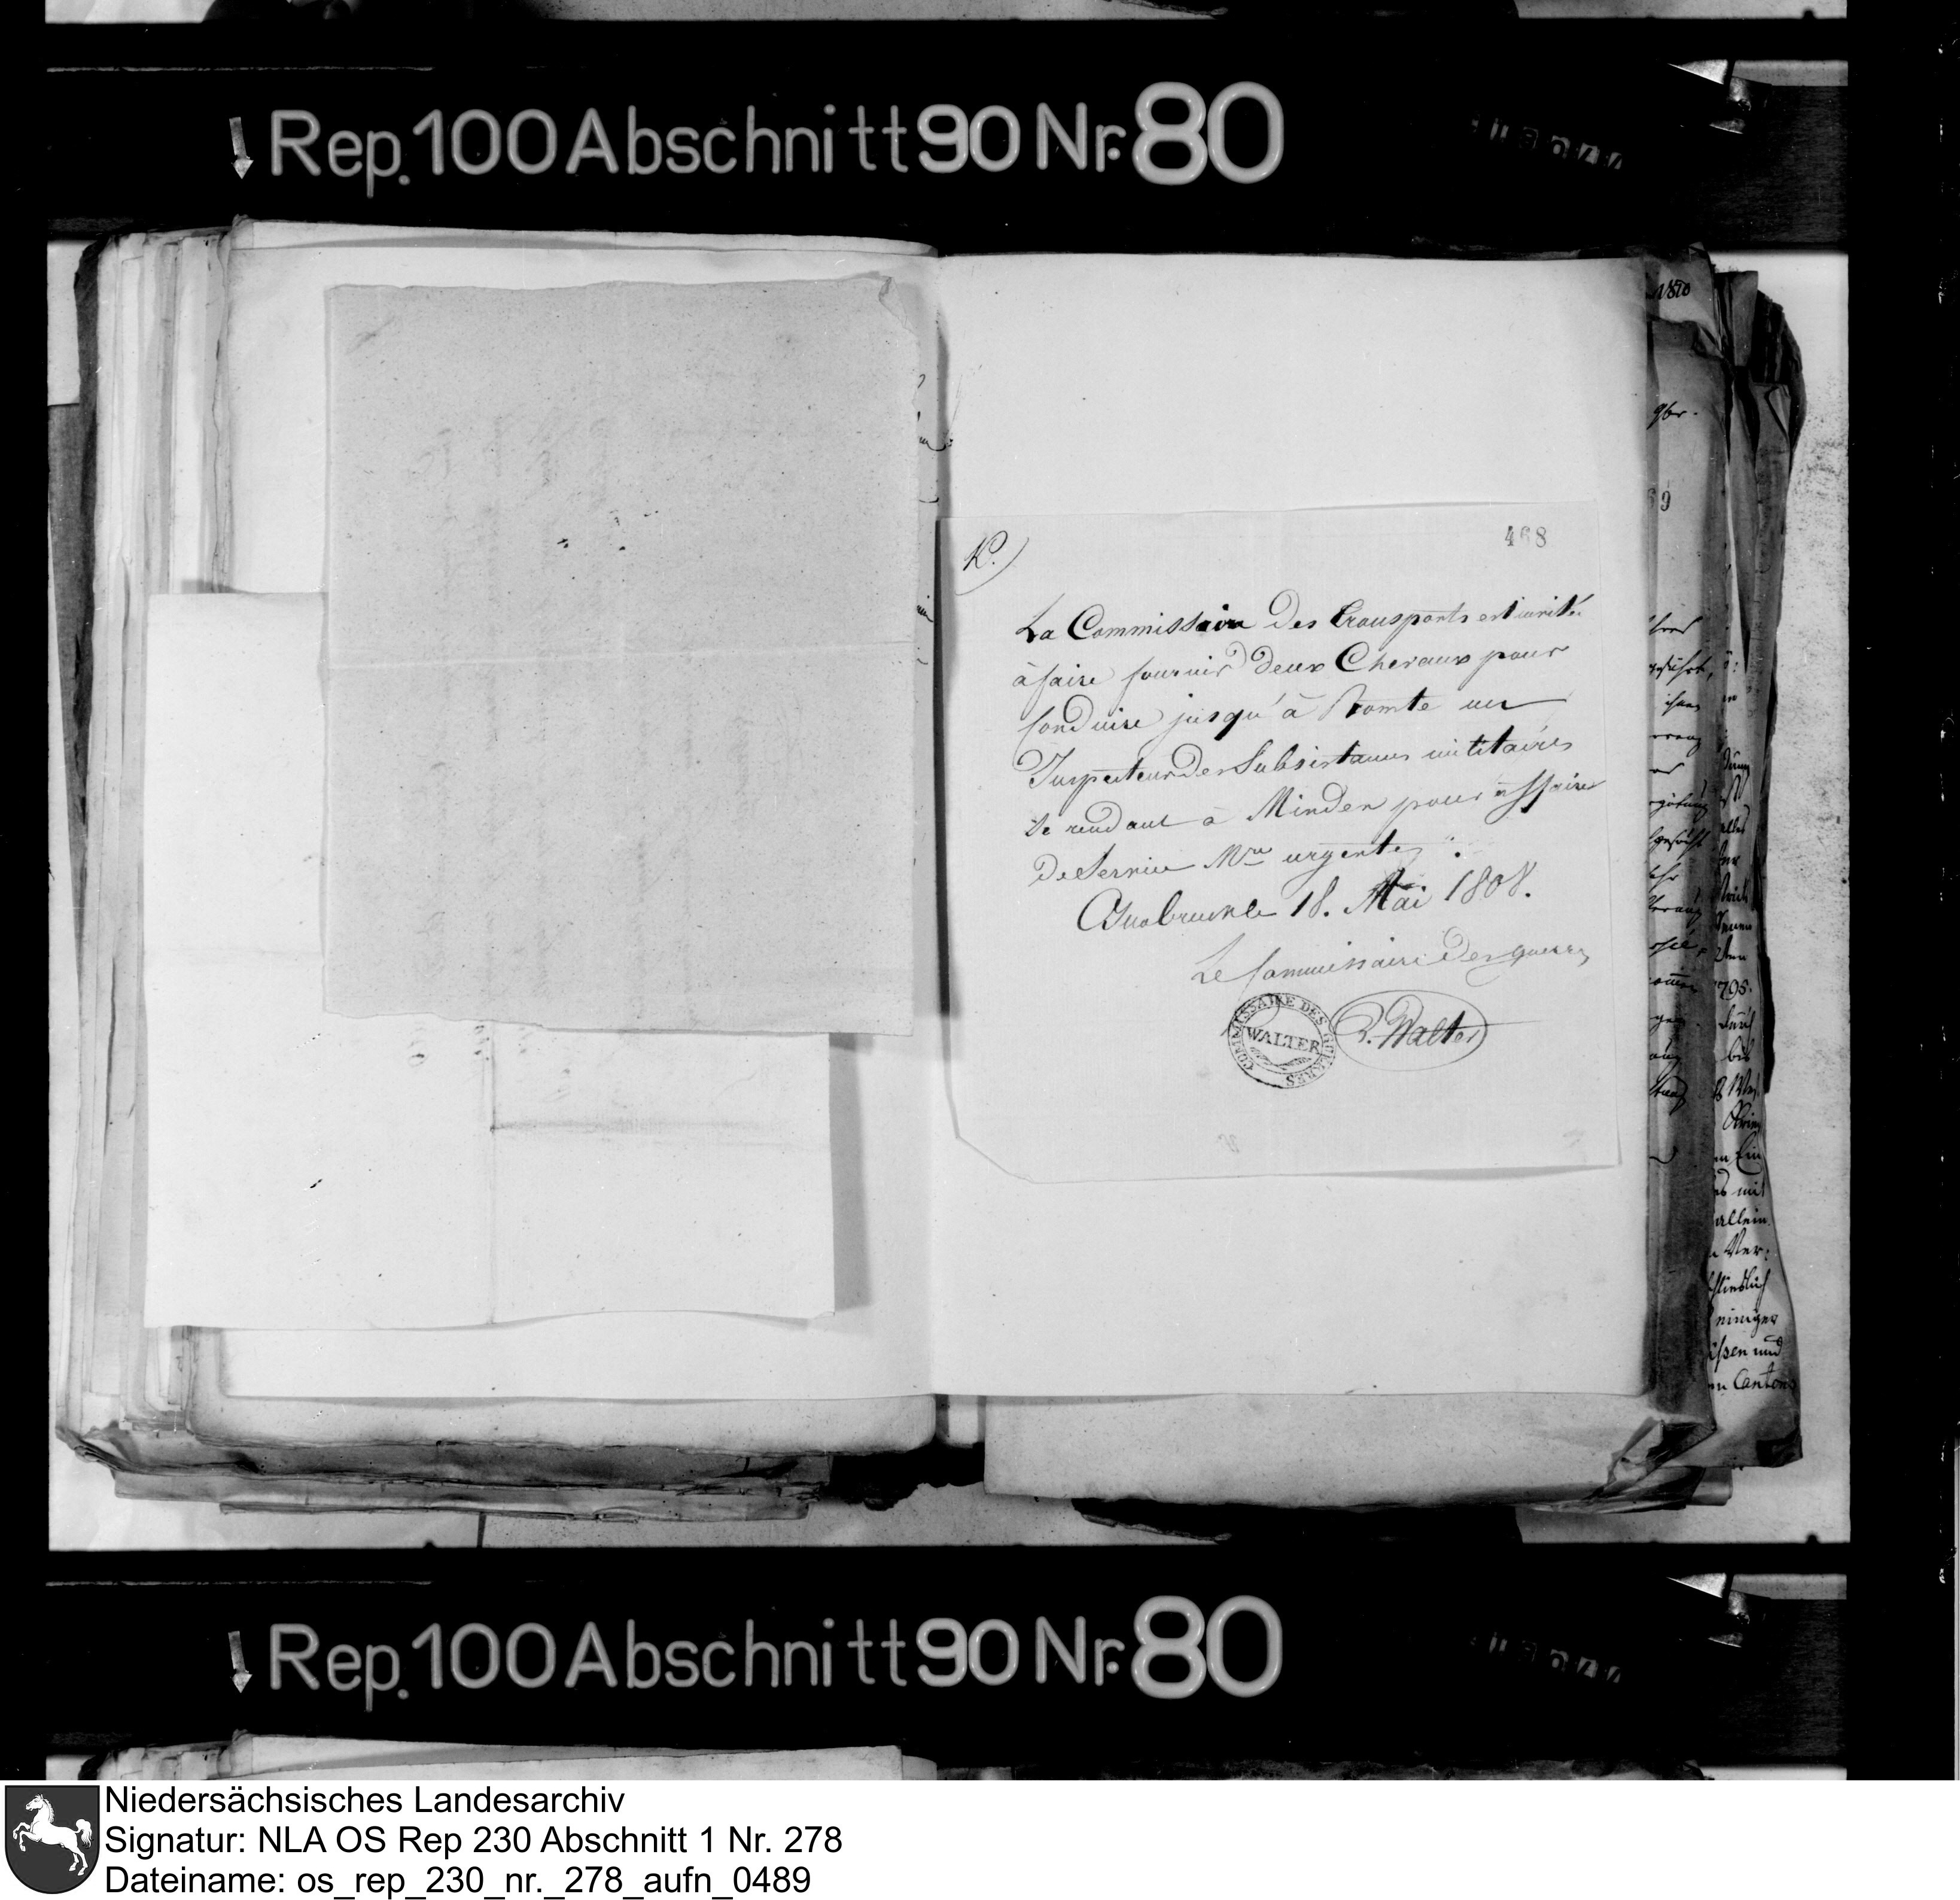 Rep. 100 Abschnitt 90 Nr. 80
K.)
468
La Commission Des transports est invité
à faire fournir Deux Chevaux pour
Conduire jusqu'à Bomte un
Inspecteur Des Subsistances militaires
Se rendant à Minden pour affaires
De Service Mre urgentes.
Osnabruck le 18. Mai 1808.
Le Commissaire Des guerres
COMMISSAIRE DES GUERRES
WALTER
Walter
1810
9br.
69
1795.
allein
Ver:
einiger
und
Canton
Rep. 100 Abschnitt 90 Nr. 80
Niedersächsisches Landesarchiv
Signatur: NLA OS Rep 230 Abschnitt 1 Nr. 278
Dateiname: os_rep_230_nr._278_aufn_0489